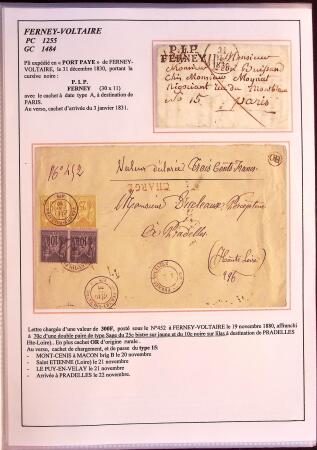 FERNEY-VOLTAIRE
PC 1255
GC 1484
Pli expédié en « PORT PAYE » de FERNEY-
VOLTAIRE, le 31 décembre 1830, portant la
cursive noire :
P. 1. P.
FERNEY (30 x 11)
avec le cachet à date type A, à destination de
PARIS.
Au verso, cachet d'arrivée du 3 janvier 1831.
P. 1. P.
FERNEY
Monsieur
Monsieur
Chez Monsieur
Négociant rue du
No 15, Paris
No 452
Valeur déclarée Trois Cents Francs
CHARGÉ
OR
Monsieur
à Pradelles
(Haute Loire)
Lettre chargée d'une valeur de 300F, posté sous le N°452 à FERNEY-VOLTAIRE le 19 novembre 1880, affranchi
à 70c d'une double paire de type Sage du 25c bistre sur jaune et du 10c noire sur lilas à destination de PRADELLES
Hte-Loire). En plus cachet OR d'origine rurale .
Au verso, cachet de chargement, et de passe du type 15:
- MONT-CENIS à MACON brig B le 20 novembre
- Saint ETIENNE (Loire) le 21 novembre
- LE PUY-EN-VELAY le 21 novembre
- Arrivée à PRADELLES le 22 novembre.